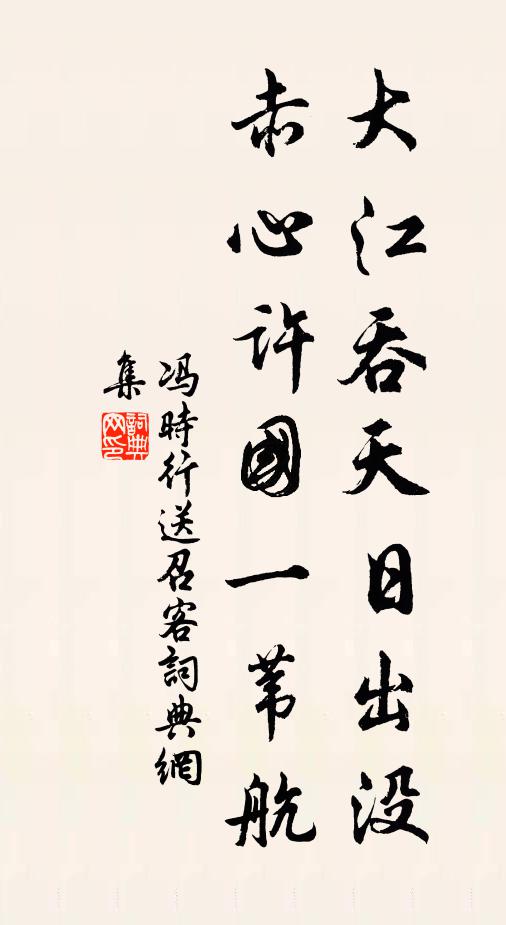 大江吞天日出没
赤心许國一苇航
冯時行送召客詞典網
集
詞典
网印